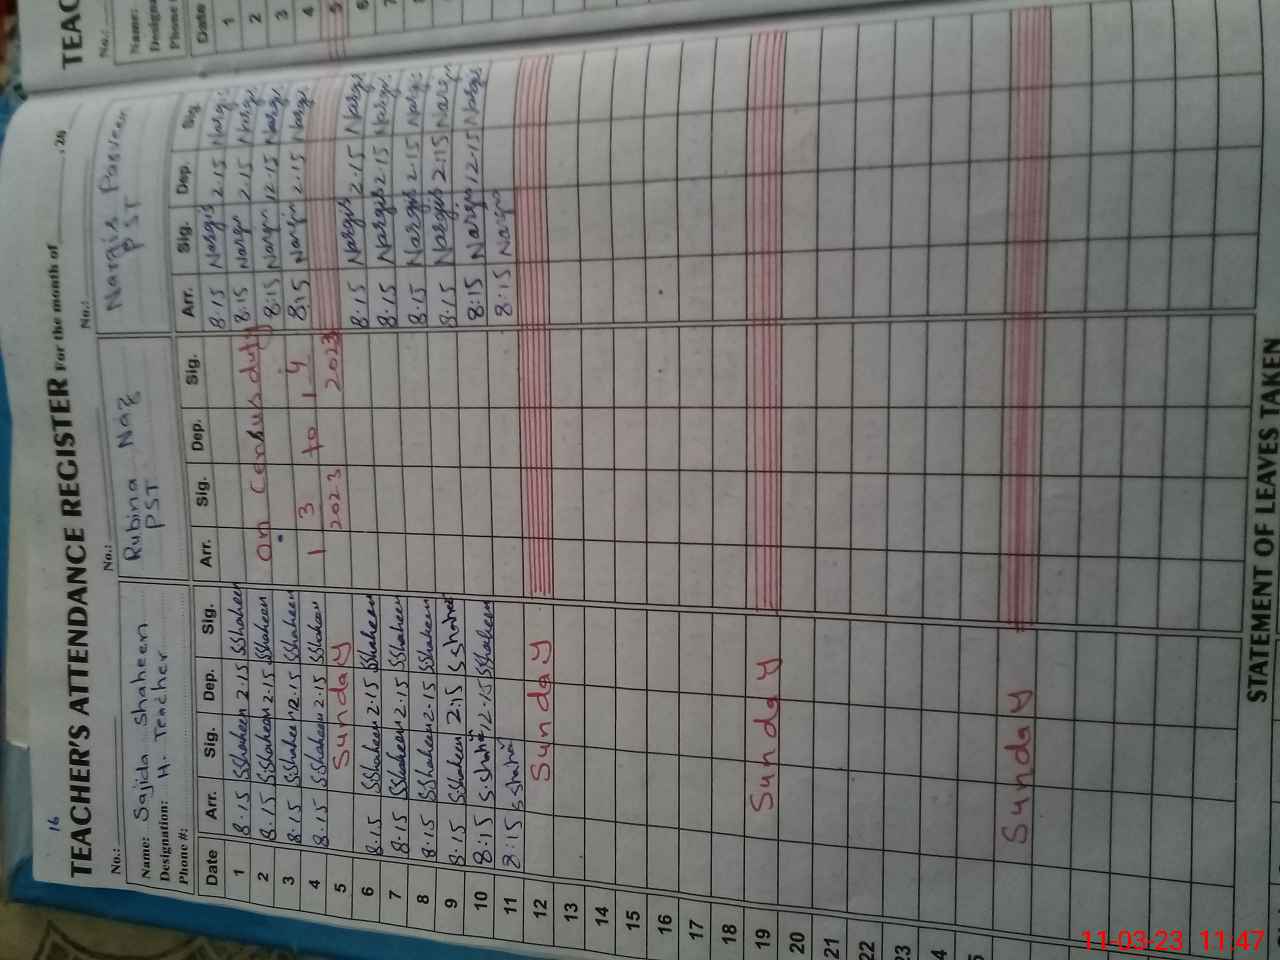 16
TEACHER'S ATTENDANCE REGISTER For the month of , 20
No.: No.: No.:
Name: Sajida Shaheen Rubina Naz Nargis Parveen
Designation: H. Teacher PST PST
Phone #:
Date Arr. Sig. Dep. Sig. Arr. Sig. Dep. Sig. Arr. Sig. Dep. Sig.
1 8.15 SShaheen 2.15 SShaheen 8.15 Nargis 2.15 Nargis
2 8.15 SShaheen 2.15 SShaheen on Census duty 8.15 Nargis 2.15 Nargis
3 8.15 SShaheen 12.15 SShaheen 8:15 Nargis 12.15 Nargis
4 8.15 SShaheen 2.15 SShaheen 1 3 2023 to 1 4 2023 8:15 Nargis 2.15 Nargis
5 Sunday
6 8.15 SShaheen 2.15 SShaheen 8.15 Nargis 2.15 Nargis
7 8.15 SShaheen 2.15 SShaheen 8.15 Nargis 2.15 Nargis
8 8.15 SShaheen 2.15 SShaheen 8.15 Nargis 2.15 Nargis
9 8.15 SShaheen 2:15 SShaheen 8.15 Nargis 2:15 Nargis
10 8:15 S.Shaheen 2.15 SShaheen 8:15 Nargis 12.15 Nargis
11 8:15 SShaheen 8:15 Nargis
12 Sunday
13
14
15
16
17
18
19 Sunday
20
21
22
23
4
5
Sunday
STATEMENT OF LEAVES TAKEN
TEAC
No.:
Name:
Designa
Phone
Date
1
2
3
4
5
6
7
11-03-23 11:47